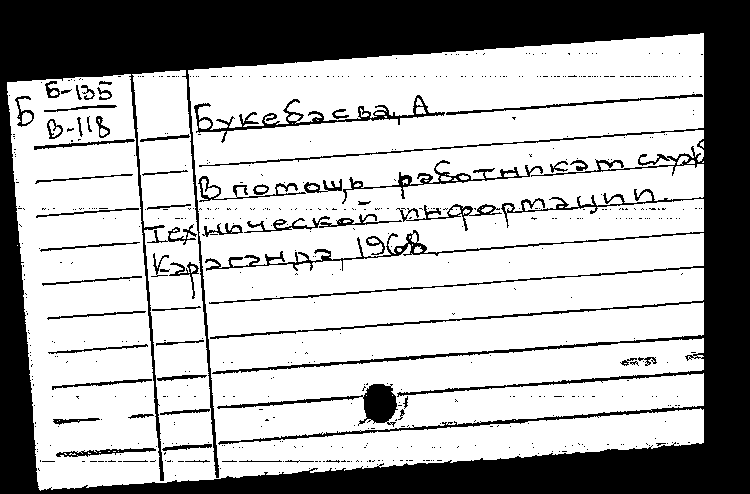 Б Б-13Б
В-118
Букебаева, А
В помощь работникам служб
технической информации.
Караганда, 1968.